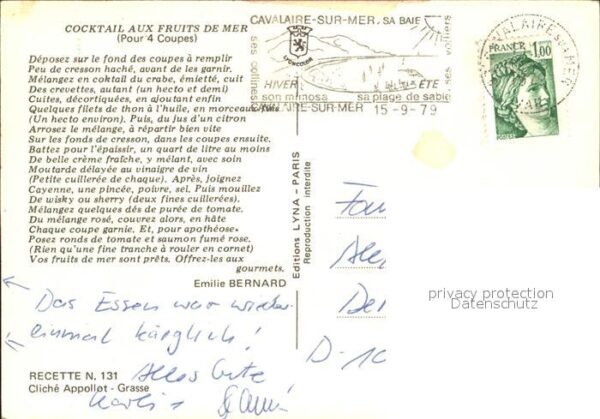 COCKTAIL AUX FRUITS DE MER
(Pour 4 Coupes)
Déposez sur le fond des coupes à remplir
Peu de cresson haché, avant de les garnir.
Mélangez en coktail du crabe, émietté, cuit
Des crevettes, autant (un hecto et demi)
Cuites, décortiquées, en ajoutant enfin
Quelques filets de thon à l'huile, en morceaux fins
(Un hecto environ). Puis, du jus d'un citron
Arrosez le mélange, à répartir bien vite
Sur les fonds de cresson, dans les coupes ensuite.
Battez pour l'épaissir, un quart de litre au moins
De belle crème fraîche, y mêlant, avec soin
Moutarde délayée au vinaigre de vin
(Petite cuillerée de chaque). Après, Joignez
Cayenne, une pincée, poivre, sel. Puis mouillez
De wisky ou sherry (deux fines cuillerées).
Mélangez quelques dés de purée de tomate.
Du mélange rosé, couvrez alors, en hâte
Chaque coupe garnie. Et, pour apothéose.
Posez ronds de tomate et saumon fumé rose.
(Rien qu'une fine tranche à rouler en cornet)
Vos fruits de mer sont prêts. Offrez-les aux
gourmets.
Emilie BERNARD
Das Essen war wieder
einmal kärglich!
Alles Gute
RECETTE N. 131
Cliché Appollot - Grasse
Editions LYNA - PARIS
Reproduction interdite
CAVALAIRE-SUR-MER, SA BAIE
ses collines
ses voiliers
HIVER
ÉTÉ
son mimosa
sa plage de sable
CAVALAIRE-SUR-MER
15-9-79
FRANCE
1,00
D-10
privacy protection
Datenschutz